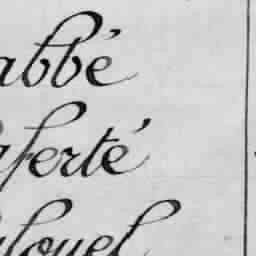 abbé
aferté
louel